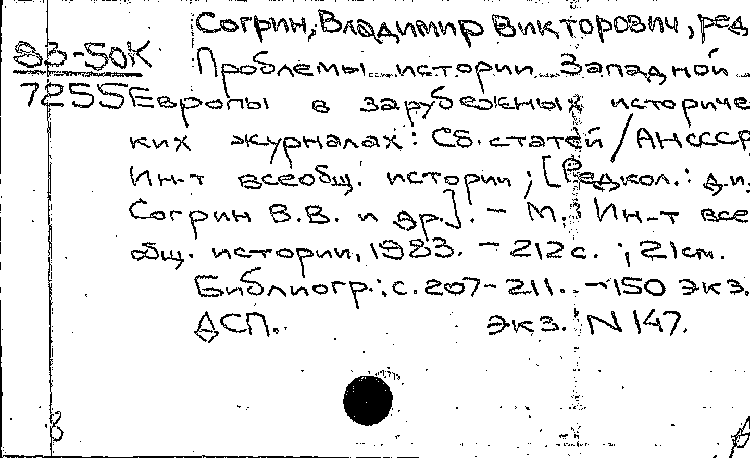 Согрин, Владимир Викторович, ред
83-50К
Проблемы истории Западной
7255 Европы в зарубежных историче
ких журналах: Сб. статей / АН СССР
Ин-т всеобщ. истории; [Редкол.: д.и.
Согрин В.В. и др.]. - М.: Ин-т все
общ. истории, 1983. - 212 с. ; 21 см.
Библиогр.: с. 207-211. - 150 экз.
ДСП. Экз. N 147.